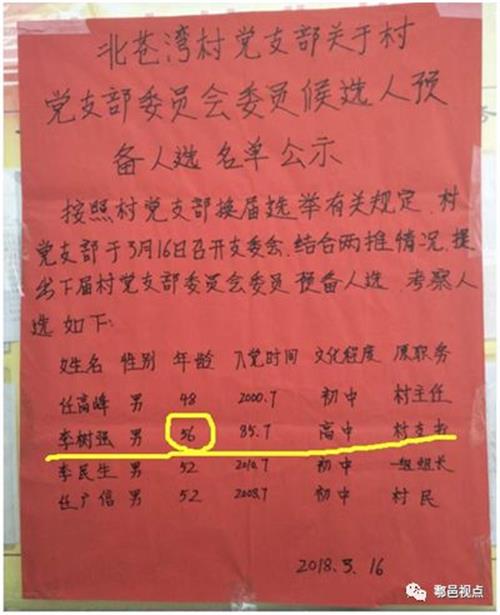 北苍湾村党支部关于村
党支部委员会委员候选人预
备人选名单公示
按照村党支部换届选举有关规定,村
党支部于3月16日召开支委会,结合两推情况,提
出下届村党支部委员会委员预备人选,考察人
选如下:
姓名 性别 年龄 入党时间 文化程度 原职务
任高峰 男 48 2000.7 初中 村主任
李树强 男 56 85.7 高中 村支书
李民生 男 52 2010.7 初中 一组组长
任广信 男 52 2008.7 初中 村民
2018.3.16
鄠邑视点